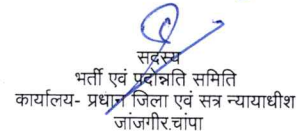 सदस्य
भर्ती एवं पदोन्नति समिति
कार्यालय- प्रधान जिला एवं सत्र न्यायाधीश
जांजगीर.चांपा